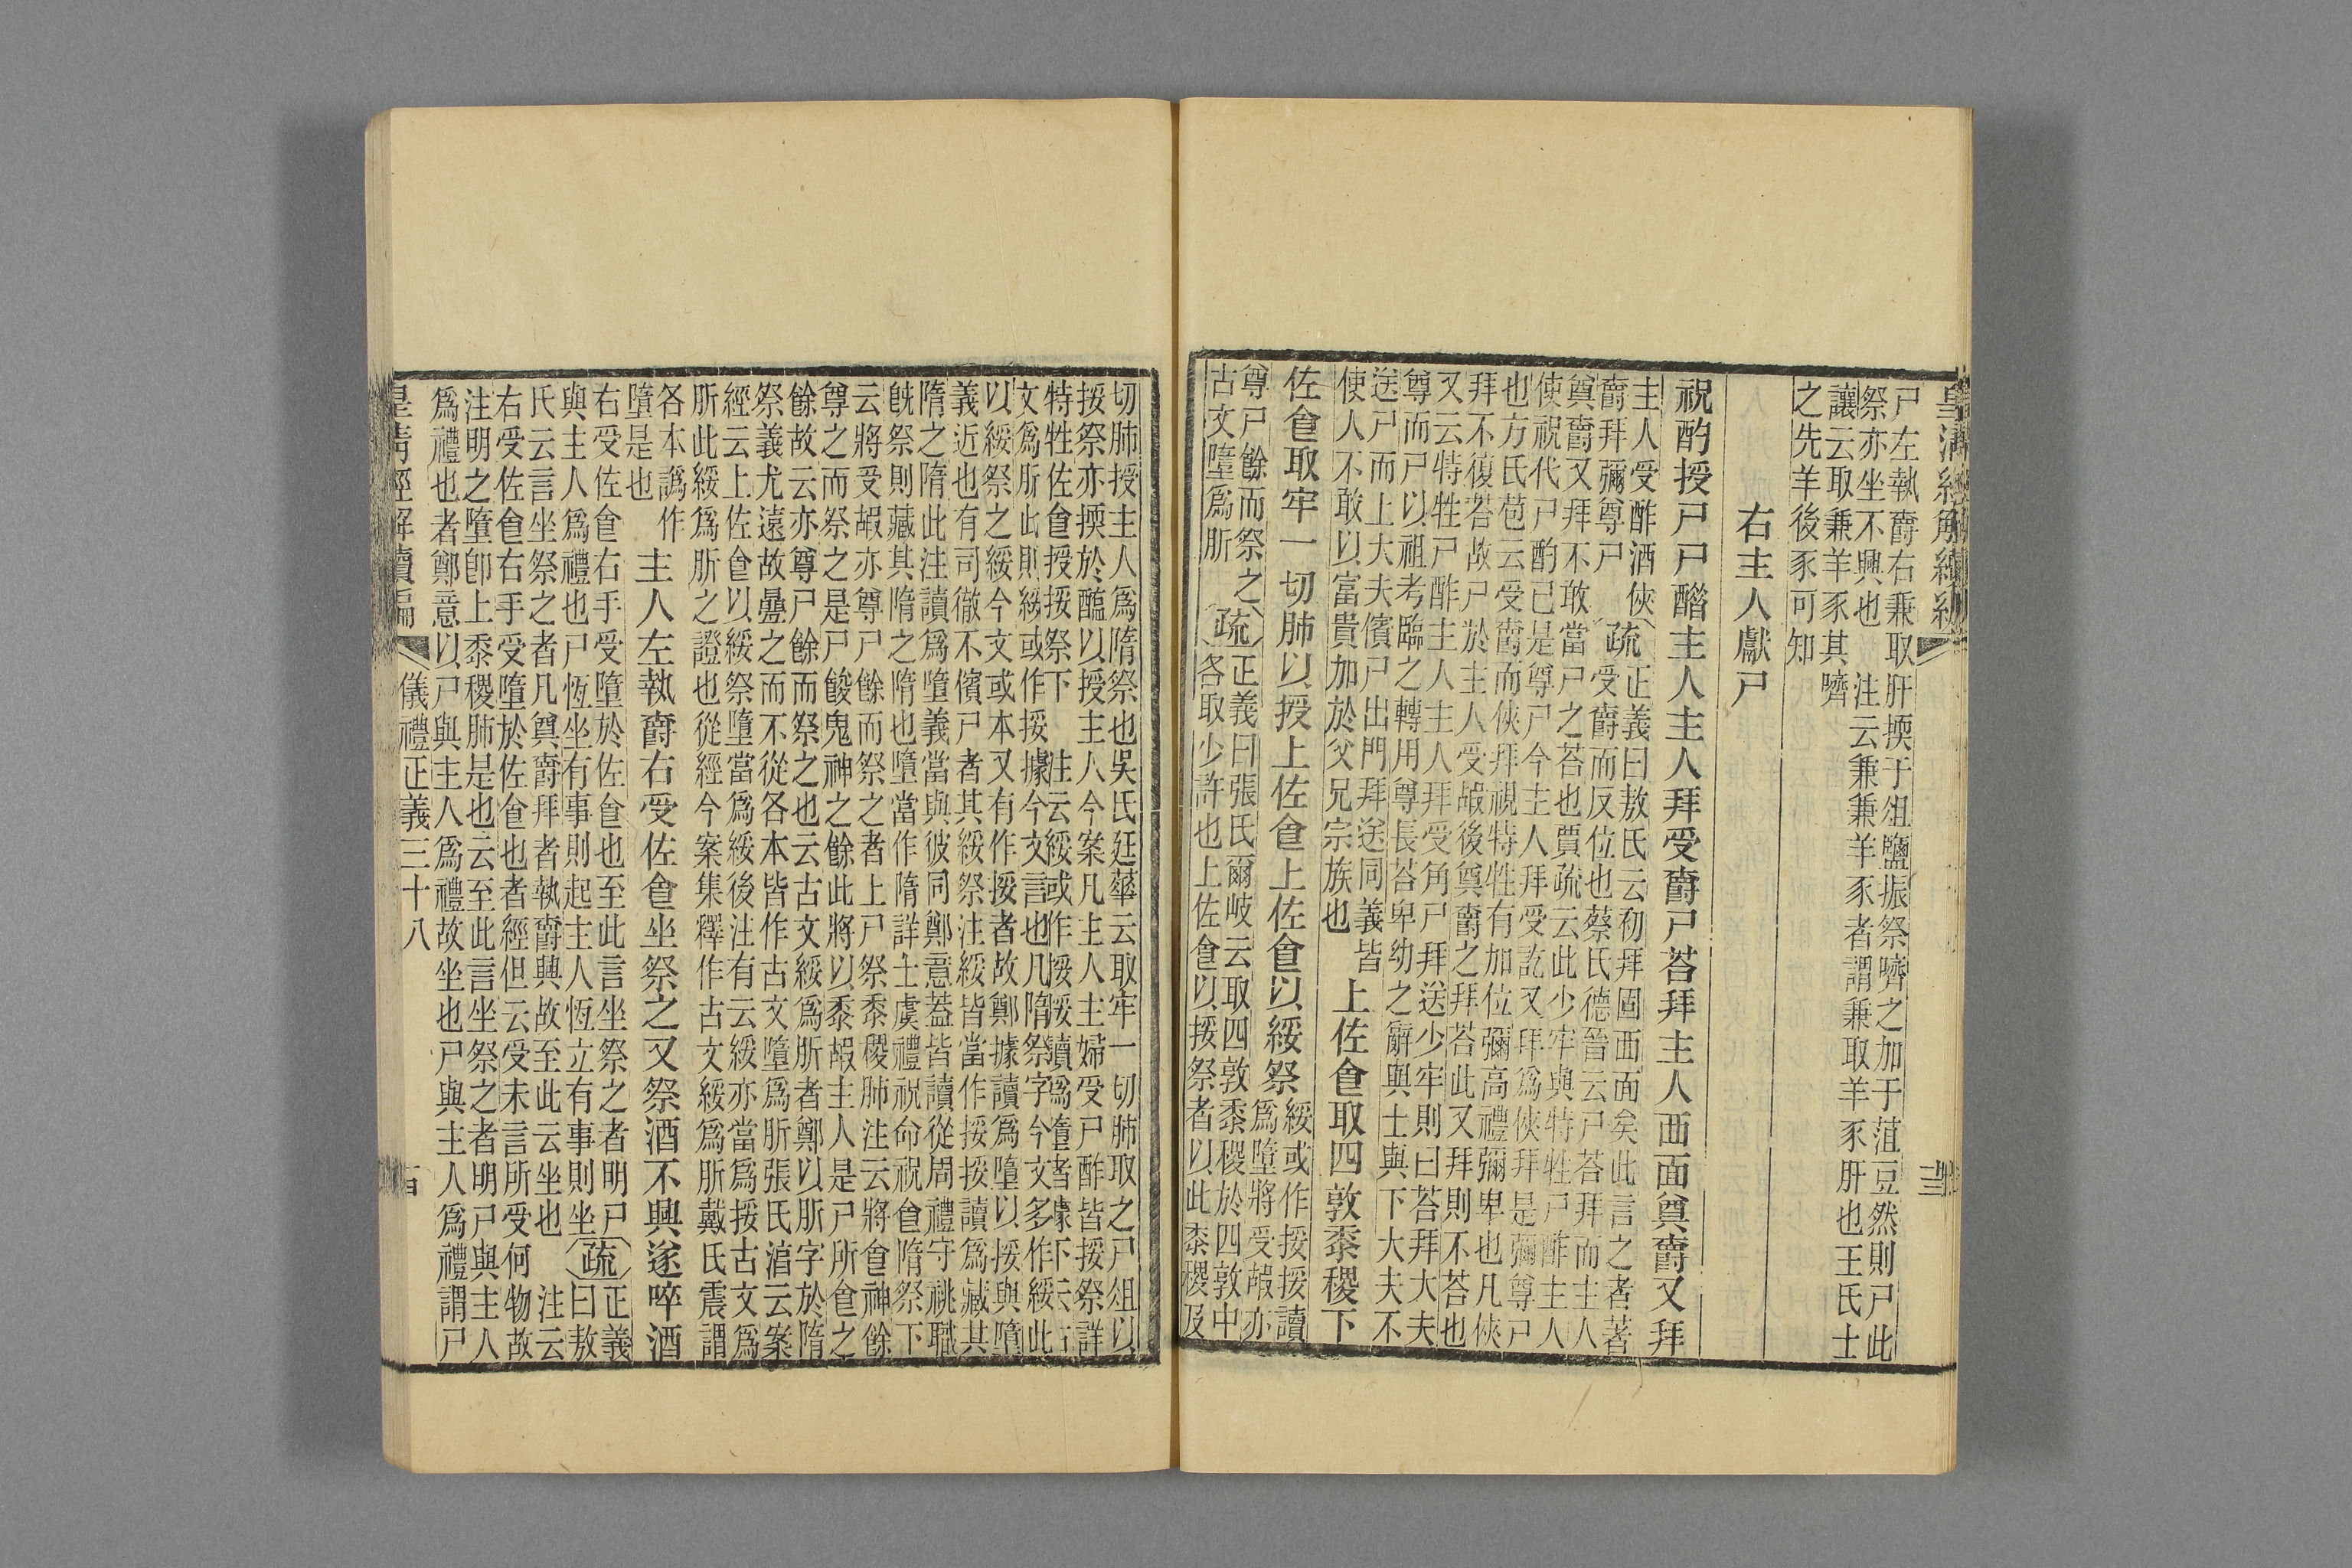 皇清經解續編
尸左執爵右兼取肝擩于俎鹽振祭嚌之加于菹豆然則尸此
祭亦坐不興也　注云兼兼羊豕者謂兼取羊豕肝也王氏士
讓云取兼羊豕其嚌
之先羊後豕可知
右主人獻尸
祝酌授尸尸醋主人主人拜受爵尸荅拜主人西面奠爵又拜
主人受酢酒俠
爵拜彌尊尸
疏
正義曰敖氏云初拜固西面矣此言之者著
受爵而反位也蔡氏德晉云尸荅拜而主人
奠爵又拜不敢當尸之荅也賈疏云此少牢與特牲尸酢主人
使祝代尸酌已是尊尸今主人拜受訖又拜爲俠拜是彌尊尸
也方氏苞云受爵而俠拜視特牲有加位彌高禮彌卑也凡俠
拜不復荅故尸於主人受嘏後奠爵之拜荅此又拜則不荅也
又云特牲尸酢主人主人拜受角尸拜送少牢則曰荅拜大夫
尊而尸以祖考臨之轉用尊長荅卑幼之辭與士與下大夫不
送尸而上大夫儐尸出門拜送同義皆
使人不敢以富貴加於父兄宗族也
上佐食取四敦黍稷下
佐食取牢一切肺以授上佐食上佐食以綏祭
綏或作挼挼讀
爲墮將受嘏亦
尊尸餘而祭之
古文墮爲肵
疏
正義曰張氏爾岐云取四敦黍稷於四敦中
各取少許也上佐食以挼祭者以此黍稷及
切肺授主人爲隋祭也吳氏廷華云取牢一切肺取之尸俎以
挼祭亦擩於醢以授主人今案凡主人主婦受尸酢皆挼祭詳
特牲佐食授挼祭下　注云綏或作挼挼讀爲墮者據下云古
文爲肵此則綏或作挼據今文言也凡隋祭字今文多作綏此
以綏祭之綏今文或本又有作挼者故鄭據讀爲墮以挼與墮
義近也有司徹不儐尸者其綏祭注綏皆當作挼挼讀爲藏其
隋之隋此注讀爲墮義當與彼同鄭意蓋皆讀從周禮守祧職
旣祭則藏其隋之隋也墮當作隋詳士虞禮祝命祝食隋祭下
云將受嘏亦尊尸餘而祭之者上尸祭黍稷肺注云將食神餘
尊之而祭之是尸餕鬼神之餘此將以黍嘏主人是尸所食之
餘故云亦尊尸餘而祭之也云古文綏爲肵者鄭以肵字於隋
祭義尤遠故疊之而不從各本皆作古文墮爲肵張氏淯云案
經云上佐食以綏祭墮當爲綏後注有云綏亦當爲挼古文爲
肵此綏爲肵之證也從經今案集釋作古文綏爲肵戴氏震謂
各本譌作
墮是也
主人左執爵右受佐食坐祭之又祭酒不興遂啐酒
右受佐食右手受墮於佐食也至此言坐祭之者明尸
與主人爲禮也尸恆坐有事則起主人恆立有事則坐
疏
正義
曰敖
氏云言坐祭之者凡奠爵拜者執爵興故至此云坐也　注云
右受佐食右手受墮於佐食也者經但云受未言所受何物故
注明之墮卽上黍稷肺是也云至此言坐祭之者明尸與主人
爲禮也者鄭意以尸與主人爲禮故坐也尸與主人爲禮謂尸
皇清經解續編　儀禮正義三十八